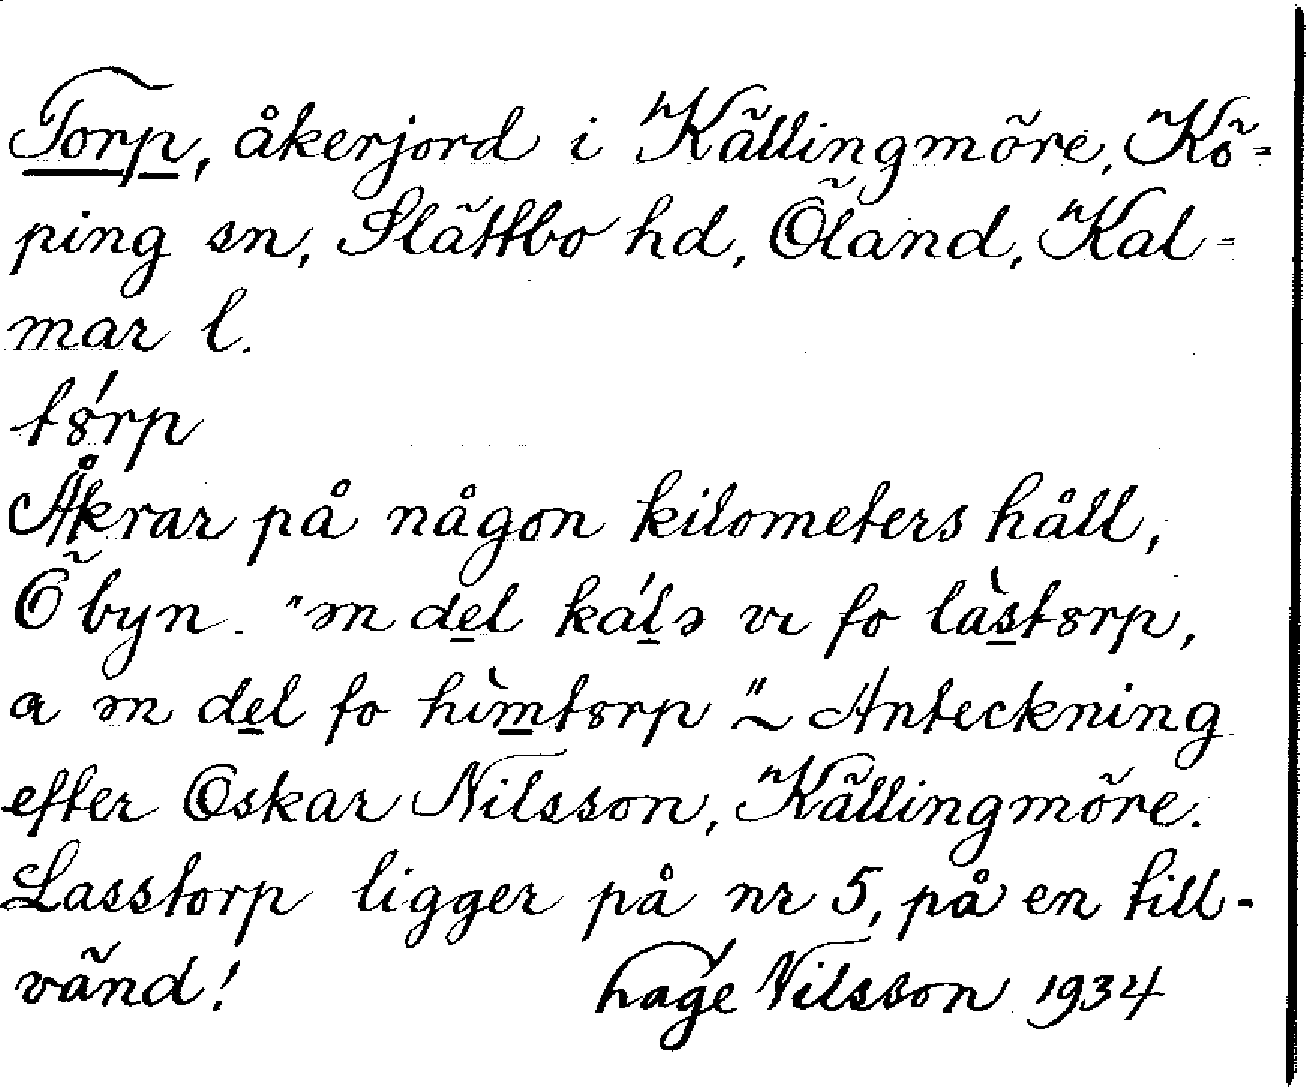 Torp, åkerjord i Källingmöre, Kö-
ping sn, Slättbo hd, Öland, Kal-
mar l.
tórp
Åkrar på någon kilometers håll,
Ö byn. "ən del kálə vɩ fo làstorp,
a ən del fo hìmtorp" ~ Anteckning
efter Oskar Nilsson, Källingmöre.
Lasstorp ligger på nr 5, på en till-
vänd! Nilsson 1934